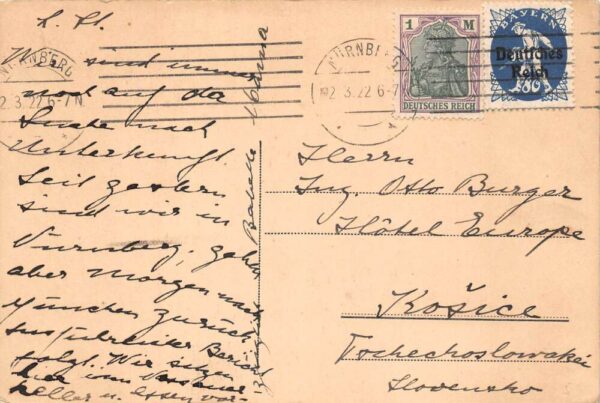 L. Ot.
Wir sind immer
noch auf da
Suche nach
Unterkunft.
Seit gestern
sind wir in
Nürnberg, gehen
aber morgen nach
München zurück.
Ausführlicher Bericht
folgt. Wir sitzen
hier im Nassauer-
keller u. essen vor-
züglich
NÜRNBERG
2.3.22 6-7N
NÜRNBERG
2.3.22 6-7
1 M
DEUTSCHES REICH
BAYERN
Deutsches
Reich
80
Herrn
Ing. Otto Burger
Hôtel Europe
Košice
Tschechoslowakei
Slovensko